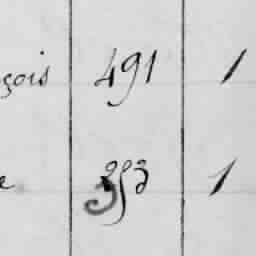 çois 491 1
e 353 1